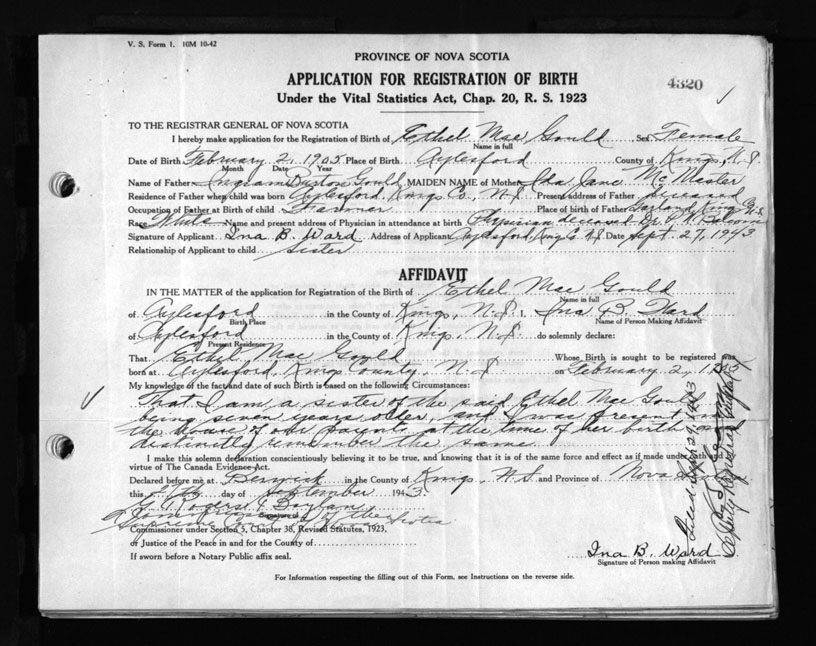 V. S. Form 1. 10M 10-42
PROVINCE OF NOVA SCOTIA
APPLICATION FOR REGISTRATION OF BIRTH
4320
Under the Vital Statistics Act, Chap. 20, R. S. 1923
TO THE REGISTRAR GENERAL OF NOVA SCOTIA
I hereby make application for the Registration of Birth of Ethel Mae Gould Sex Female
Name in full
Date of Birth February 2, 1905 Place of Birth Aylesford County of Kings, N.S.
Month Date Year
Name of Father Ingram Burton Gould MAIDEN NAME of Mother Ida Jane McMaster
Residence of Father when child was born Aylesford, Kings Co., N.S. Present address of Father deceased
Occupation of Father at Birth of child Farmer Place of birth of Father
Race White Name and present address of Physician in attendance at birth Physician deceased Dr.
Signature of Applicant Ina B. Ward Address of Applicant Aylesford, Kings N.S. Date Sept. 27, 1943
Relationship of Applicant to child Sister
AFFIDAVIT
IN THE MATTER of the application for Registration of the Birth of Ethel Mae Gould
Name in full
of Aylesford in the County of Kings, N.S. I, Ina B. Ward
Birth Place Name of Person Making Affidavit
of Aylesford in the County of Kings, N.S. do solemnly declare:
Present Residence
That Ethel Mae Gould Whose Birth is sought to be registered was
born at Aylesford, Kings County, N.S. on February 2, 1905
My knowledge of the fact and date of such Birth is based on the following Circumstances:
That I am a sister of the said Ethel Mae Gould
being seven years older, and I was present in
the house of our parents at the time of her birth and
distinctly remember the same
I make this solemn declaration conscientiously believing it to be true, and knowing that it is of the same force and effect as if made under oath and by
virtue of The Canada Evidence Act.
Declared before me at Berwick in the County of Kings, N.S. and Province of Nova Scotia
this 27th day of September 1943.
Supreme Court of Nova Scotia
Commissioner under Section 3, Chapter 38, Revised Statutes, 1923.
or Justice of the Peace in and for the County of
If sworn before a Notary Public affix seal.
Ina B. Ward
Signature of Person making Affidavit
For Information respecting the filling out of this Form, see Instructions on the reverse side.
Filed Sept 29, 1943
Deputy Registrar General